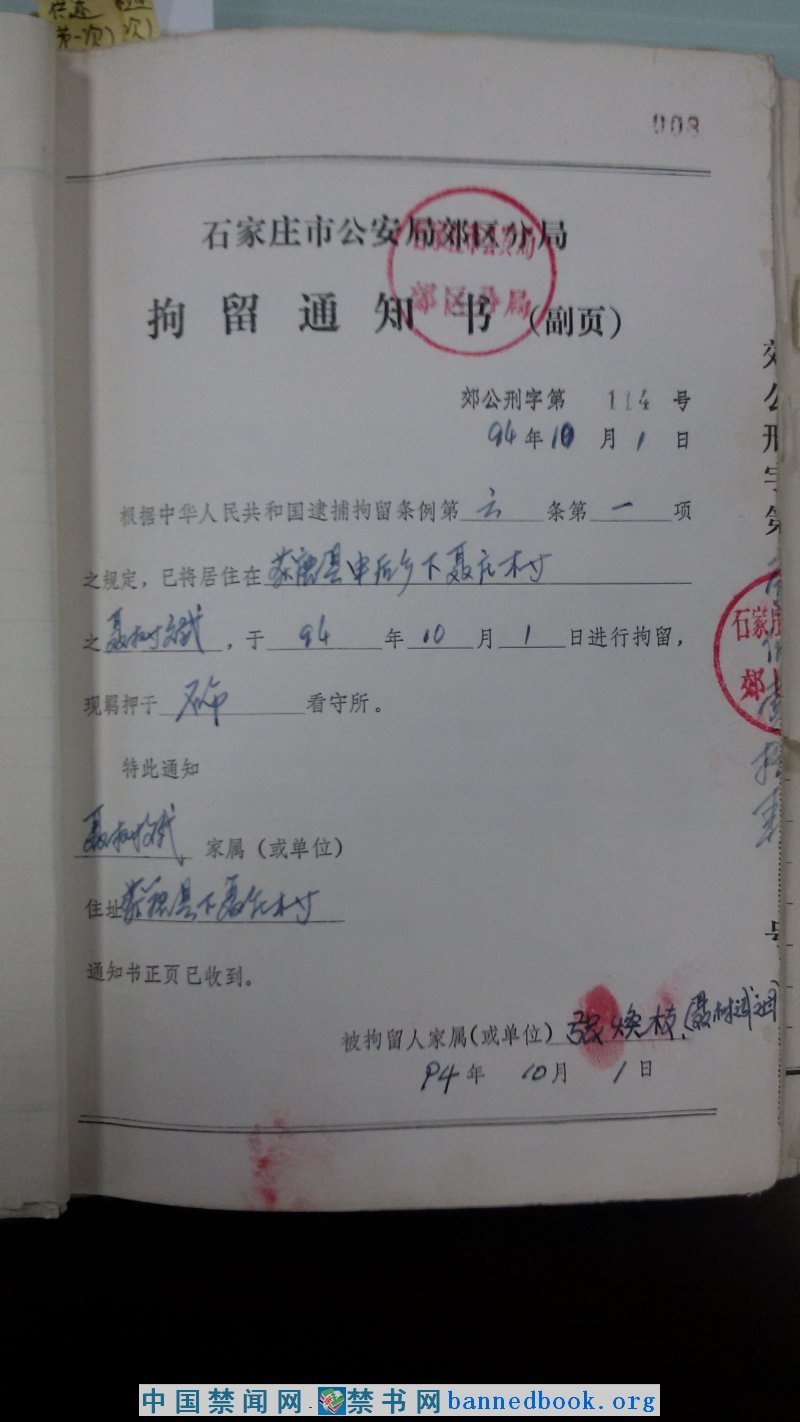 供述
第一次) 次)
008
石家庄市公安局郊区分局
石家庄市公安局
郊区分局
拘留通知书(副页)
郊公刑字第 114 号
94年10月1日
根据中华人民共和国逮捕拘留条例第六条第一项
之规定,已将居住在获鹿县申后乡下聂庄村
之聂树斌,于94年10月1日进行拘留,
现羁押于石市看守所。
特此通知
聂树斌家属(或单位)
住址获鹿县下聂庄村
通知书正页已收到。
被拘留人家属(或单位)张焕枝(聂树斌
94年10月1日
郊公刑字第
石家庄
郊
号
中国禁闻网 禁书网 bannedbook.org